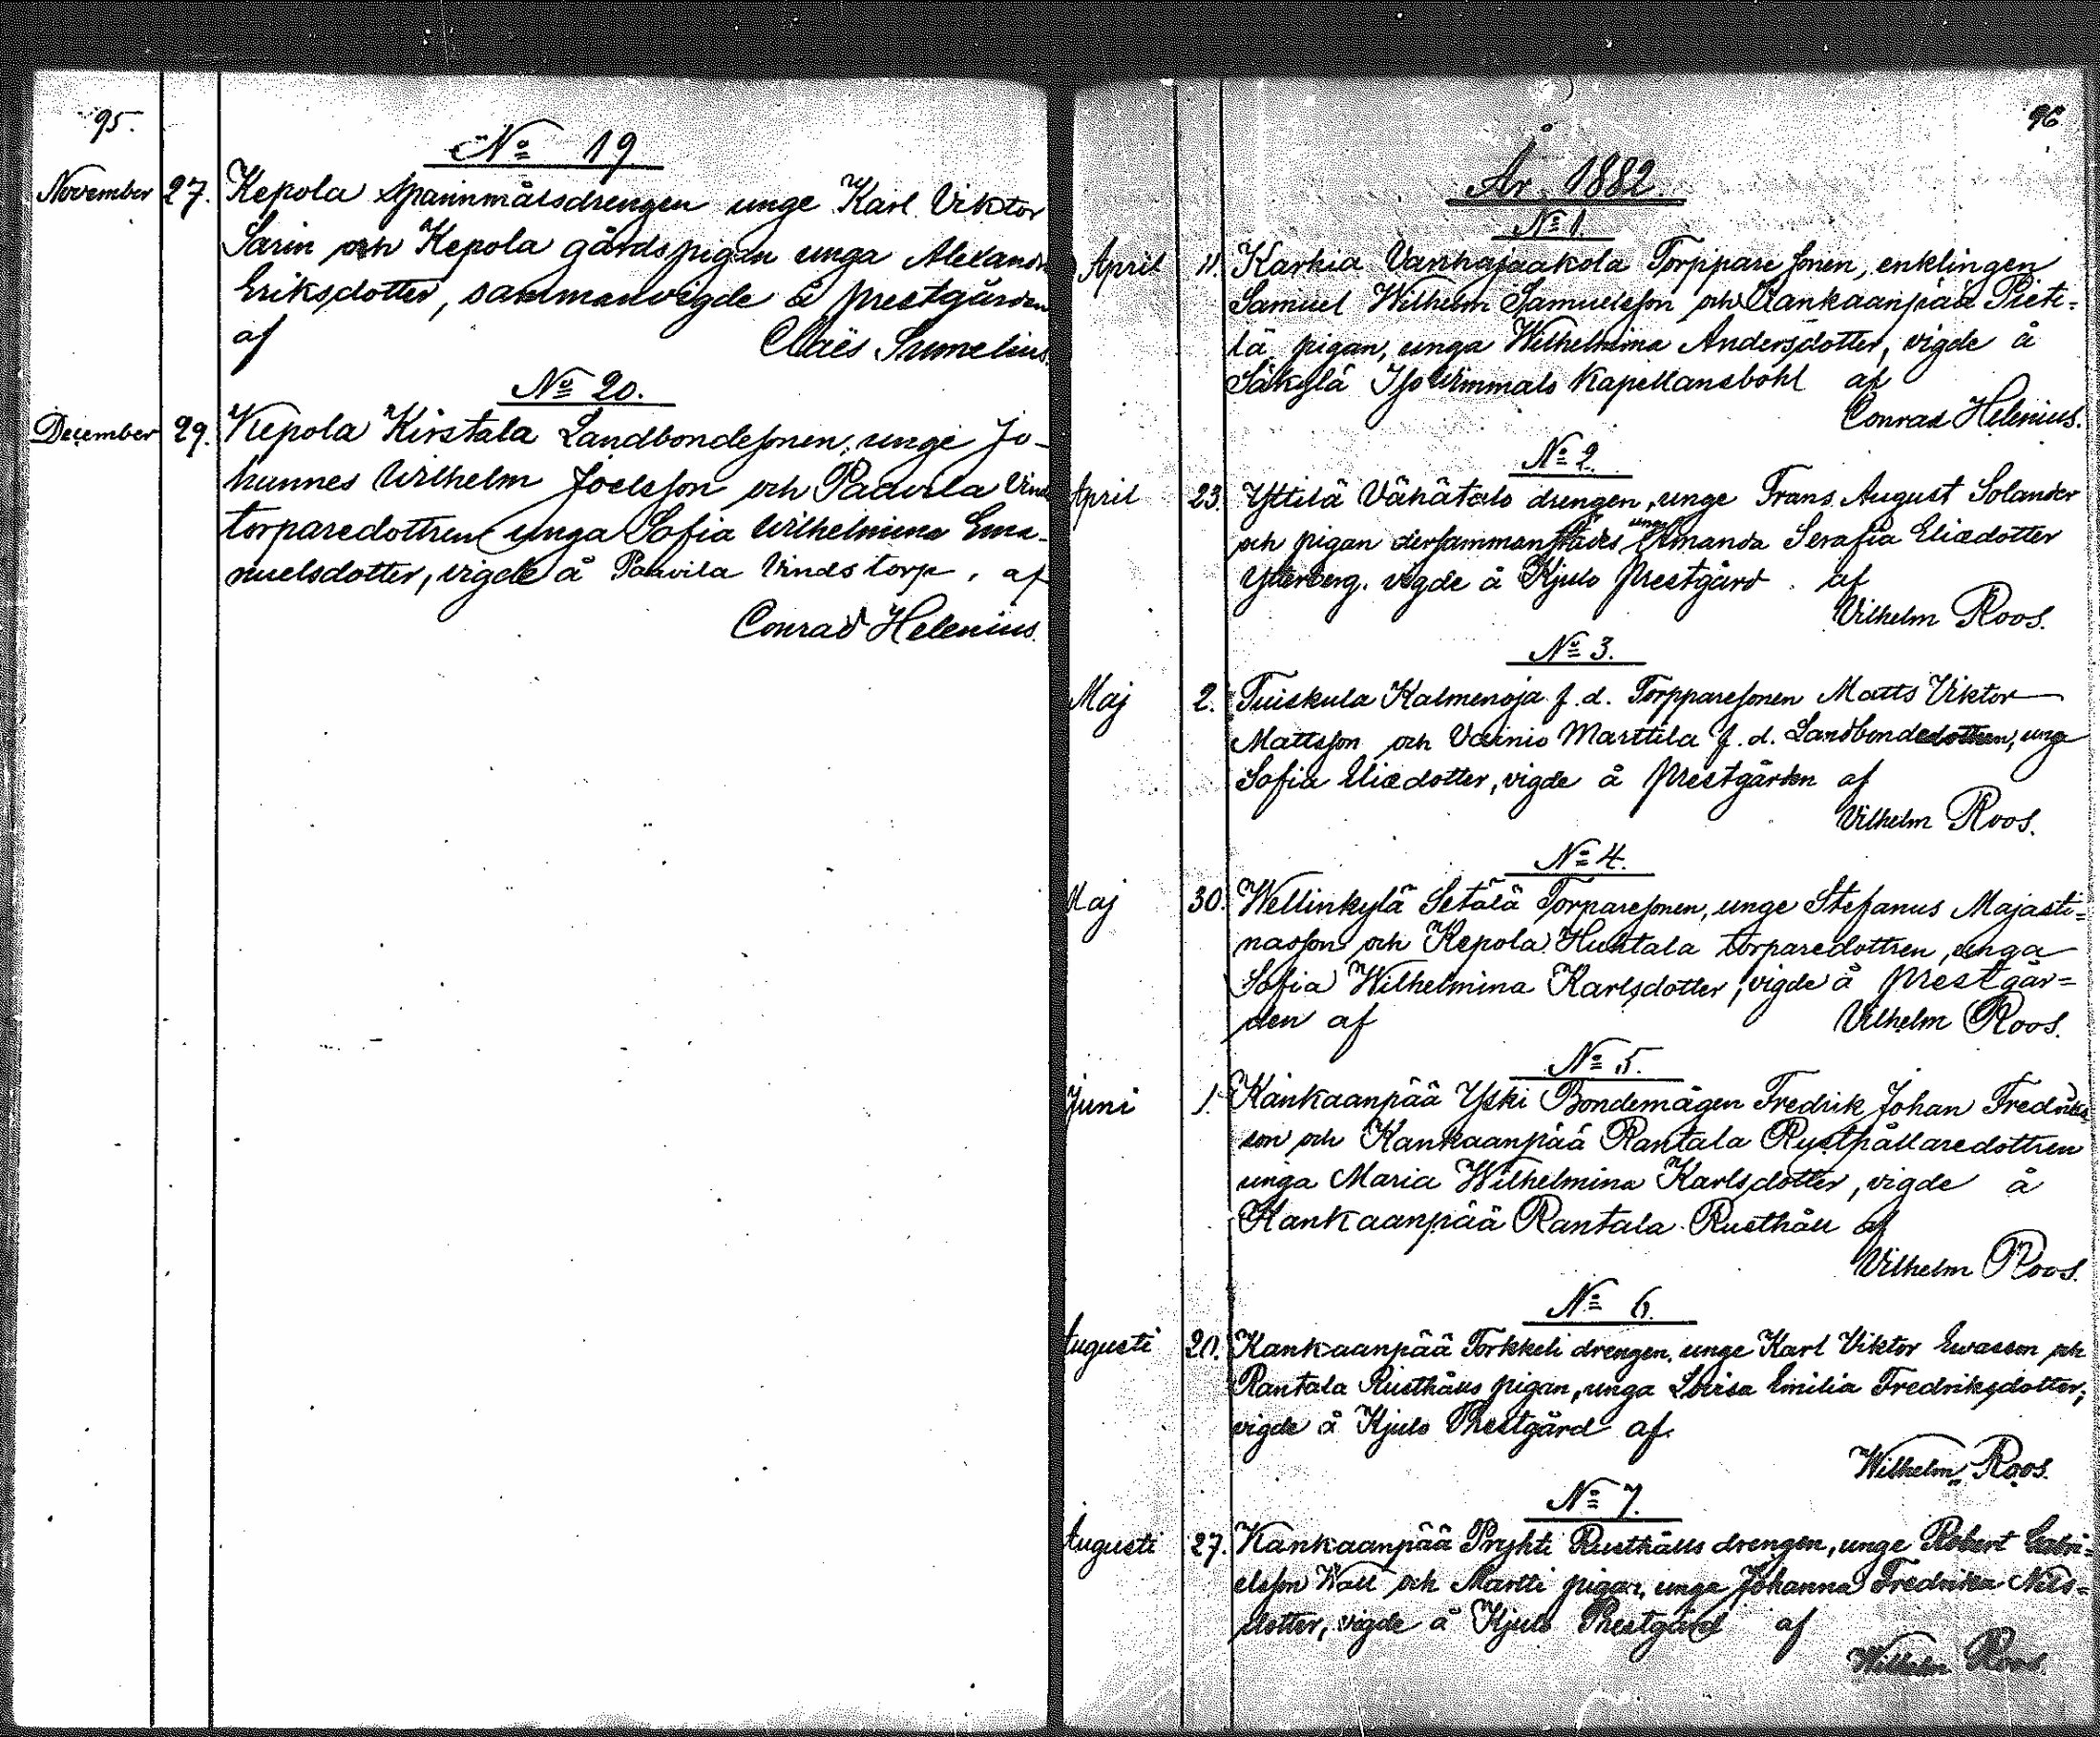 95.
No 19
November 27. Kepola spannmålsdrengen unge Karl Viktor
Sarin och Kepola gårdspigan unga Alexandra
Eriksdotter, sammanvigde å prestgården
af Claës Sumelius.
No 20.
December 29. Kepola Kirstala Landbondesonen, unge Jo-
hannes Wilhelm Joelsson och Paavila Vinds
torparedottren unga Sofia Wilhelmina Ema-
nuelsdotter, vigde å Paavila Vindstorp, af
Conrad Helenius.
96
År 1882.
No 1.
April 11. Karhia Vanhajaakola Torppare sonen, enklingen
Samuel Wilhelm Samuelsson och Kankaanpää Pieti-
lä pigan, unga Wilhelmina Andersdotter, vigde å
Säkylä Iso Uimmals Kapellansbohl af
Conrad Helenius.
No 2.
April 23. Yttilä Vähätalo drengen, unge Frans August Solander
och pigan dersammanstädes unga Amanda Serafia Eliædotter
Ytterberg. vigde å Kjulo prestgård af
Vilhelm Roos.
No 3.
Maj 2. Tuiskula Kalmenoja f.d. Torpparesonen Matts Viktor
Mattsson och Vainio Marttila f.d. Landbondedottren, unga
Sofia Eliædotter, vigde å prestgården af
Vilhelm Roos.
No 4.
Maj 30. Wellinkylä Setälä Torparesonen, unge Stefanus Majasti=
nasson och Kepola Huhtala torparedottren, unga
Sofia Wilhelmina Karlsdotter, vigde å prestgår=
den af Vilhelm Roos.
No 5.
Juni 1. Kankaanpää Yski Bondemågen Fredrik Johan Fredriks
son och Kankaanpää Rantala Rusthållaredottren
unga Maria Wilhelmina Karlsdotter, vigde å
Kankaanpää Rantala Rusthåll af
Vilhelm Roos.
No 6.
Augusti 20. Kankaanpää Torkkeli drengen, unge Karl Viktor Ewasson och
Rantala Rusthålls pigan, unga Lovisa Emilia Fredriksdotter,
vigde å Kjulo Prestgård af
Wilhelm Roos.
No 7.
Augusti 27. Kankaanpää Pryhti Rusthålls drengen, unge Robert Gabri=
elsson Wall och Martti pigan, unga Johanna Fredrika Nils=
dotter, vigde å Kjulo Prestgård af
Wilhelm Roos.